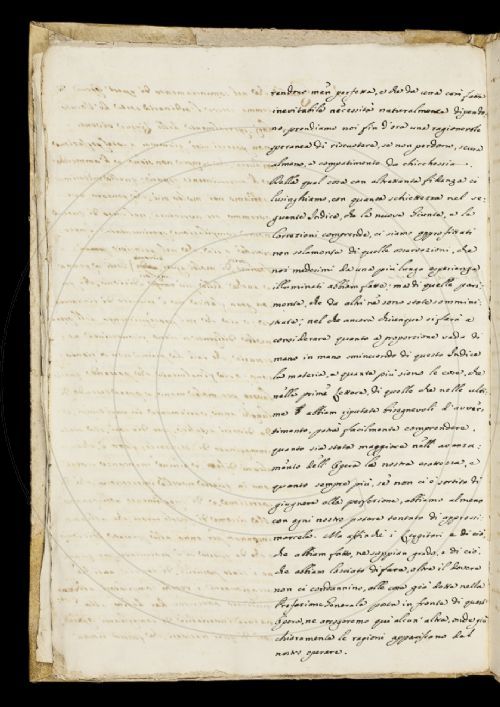 rendere men perfetta, e che da una cosi fatta
inevitabile necessità naturalmente dipendo-
no, prendiamo noi fin d'ora una ragionevole
speranza di riscuotere, se non perdono, scusa
almeno, e compatimento da chichessia.
Della qual cosa con altrettanta fidanza ci
lusinghiamo, con quanta schiettezza nel se-
guente Indice, che la nuova Giunta, e le
Correzioni comprende, ci siamo approfittati
non solamente di quelle osservazioni, che
noi medesimi da una più lunga esperienza
illuminati abbiam fatte; ma di quelle pari-
mente, che da altri ne sono state sommini-
strate; nel che ancora chiunque si farà a
considerare quanto a proporzione vada di
mano in mano scemandosi di questo Indice
la materia, e quanto più sieno le cose, che
nelle prime Lettere, di quelle che nelle ulti-
me abbiam riputate bisognevoli d'avver-
timento, potrà facilmente comprendere,
quanto sia stata maggiore nell'avanza-
mento dell'Opera la nostra esattezza, e
quanto sempre più, se non ci è sortito di
giugnere alla perfezione, abbiamo almeno
con ogni nostro potere tentato di approssi-
marcele. Ma affinchè i Leggitori e di ciò,
che abbiam fatto, ne sappian grado, e di ciò,
che abbiam lasciato di fare, oltre il dovere
non ci condannino, alle cose già dette nella
Prefazione Generale posta in fronte di quest'
Opera, ne arrogeremo qui alcun'altra, onde più
chiaramente le ragioni appariscano del
nostro operare.